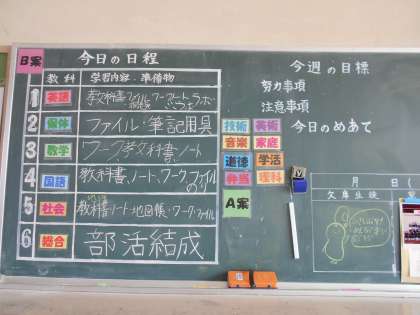 B案
今日の日程
教科 学習内容・準備物
1 英語 教科書、ファイル、ワーク、ノート、ラ・ホ・
2 保体 ファイル・筆記用具
3 数学 ワーク、教科書、ノート
4 国語 教科書、ノート、ワーク、ファイル
のり
5 社会 教科書・ノート・地図帳・ワーク・ファイル
6 総合 部活結成
技術 美術
音楽 家庭
道徳 学活
弁当 理科
A案
今週の目標
努力事項
注意事項
今日のめあて
月 日(
欠席生徒